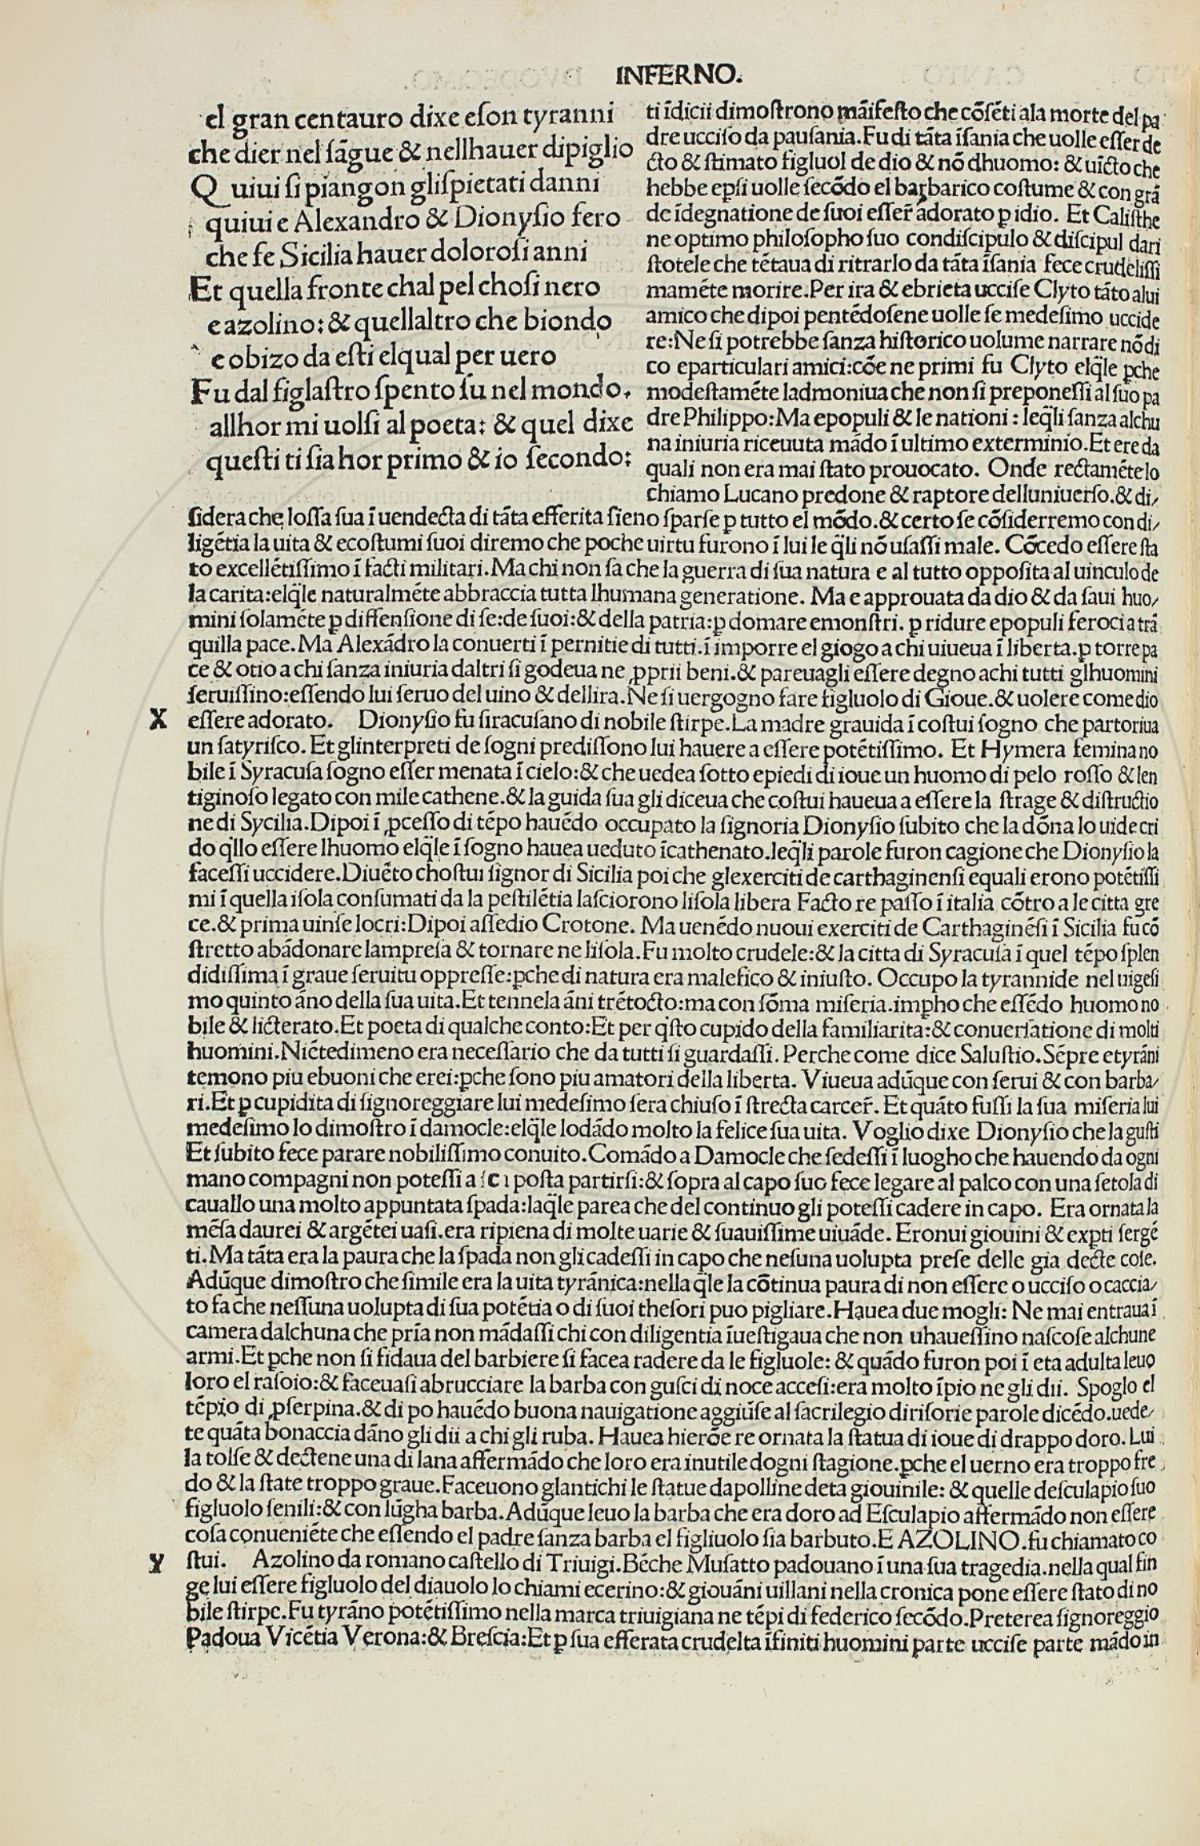 INFERNO.
el gran centauro dixe eson tyranni
che dier nel sãgue & nellhauer dipiglio
Quiui si piangon glispietati danni
quiui e Alexandro & Dionysio fero
che fe Sicilia hauer dolorosi anni
Et quella fronte chal pel chosi nero
e azolino: & quellaltro che biondo
e obizo da esti elqual per uero
Fu dal figlastro spento su nel mondo.
allhor mi uolsi al poeta: & quel dixe
questi ti sia hor primo & io secondo:
ti ĩdicii dimostrono mãifesto che cõsẽti ala morte del pa
dre ucciso da pausania. Fu di tãta ĩsania che uolle esser de
cto & stimato figluol de dio & nõ dhuomo: & uĩcto che
hebbe epsi uolle secõdo el barbarico costume & con grã
de ĩdegnatione de suoi esser̃ adorato ꝑ idio. Et Calisthe
ne optimo philosopho suo condiscipulo & discipul dari
stotele che tẽtaua di ritrarlo da tãta ĩsania fece crudelissi
mamẽte morire. Per ira & ebrieta uccise Clyto tãto alui
amico che dipoi pentẽdosene uolle se medesimo uccide
re: Ne si potrebbe sanza historico uolume narrare nõ di
co eparticulari amici: cõe ne primi fu Clyto elq̃le ꝑche
modestamẽte ladmoniua che non si preponessi al suo pa
dre Philippo: Ma epopuli & le nationi: leq̃li sanza alchu
na iniuria riceuuta mãdo ĩ ultimo exterminio. Et ere da
quali non era mai stato prouocato. Onde rectamẽte lo
chiamo Lucano predone & raptore delluniuerso. & di/
sidera che lossa sua ĩ uendecta di tãta efferita sieno sparse ꝑ tutto el mõdo. & certo se cõsiderremo con di/
ligẽtia la uita & ecostumi suoi diremo che poche uirtu furono ĩ lui le q̃li nõ usassi male. Cõcedo essere sta
to excellẽtissimo ĩ facti militari. Ma chi non sa che la guerra di sua natura e al tutto opposita al uinculo de
la carita: elq̃le naturalmẽte abbraccia tutta lhumana generatione. Ma e approuata da dio & da saui huo/
mini solamẽte ꝑ diffensione di se: de suoi: & della patria: ꝑ domare emonstri. ꝑ ridure epopuli feroci a trã
quilla pace. Ma Alexãdro la conuerti ĩ pernitie di tutti. ĩ imporre el giogo a chi uiueua ĩ liberta. ꝑ torre pa
ce & otio a chi sanza iniuria daltri si godeua ne ꝓprii beni. & pareuagli essere degno achi tutti glhuomini
seruissino: essendo lui seruo del uino & dellira. Ne si uergogno fare figluolo di Gioue. & uolere come dio
X essere adorato. Dionysio fu siracusano di nobile stirpe. La madre grauida ĩ costui sogno che partoriua
un satyrisco. Et glinterpreti de sogni predissono lui hauere a essere potẽtissimo. Et Hymera femina no
bile ĩ Syracusa sogno esser menata ĩ cielo: & che uedea sotto epiedi di ioue un huomo di pelo rosso & len
tiginoso legato con mile cathene. & la guida sua gli diceua che costui haueua a essere la strage & distructio
ne di Sycilia. Dipoi ĩ ꝓcesso di tẽpo hauẽdo occupato la signoria Dionysio subito che la dõna lo uide cri
do q̃llo essere lhuomo elq̃le ĩ sogno hauea ueduto ĩcathenato. leq̃li parole furon cagione che Dionysio la
facessi uccidere. Diuẽto chostui signor di Sicilia poi che glexerciti de carthaginensi equali erono potẽtissi
mi ĩ quella isola consumati da la pestilẽtia lasciorono lisola libera Facto re passo ĩ italia cõtro a le citta gre
ce. & prima uinse locri: Dipoi assedio Crotone. Ma uenẽdo nuoui exerciti de Carthaginẽsi ĩ Sicilia fu cõ
stretto abãdonare lampresa & tornare ne lisola. Fu molto crudele: & la citta di Syracusa ĩ quel tẽpo splen
didissima ĩ graue seruitu oppresse: ꝑche di natura era malefico & iniusto. Occupo la tyrannide nel uigesi
mo quinto ãno della sua uita. Et tennela ãni trẽtocto: ma con sõma miseria. impho che essẽdo huomo no
bile & licterato. Et poeta di qualche conto: Et per q̃sto cupido della familiarita: & conuersatione di molti
huomini. Niẽtedimeno era necessario che da tutti si guardassi. Perche come dice Salustio. Sẽpre etyrãni
temono piu ebuoni che erei: ꝑche sono piu amatori della liberta. Viueua adũque con serui & con barba/
ri. Et ꝑ cupidita di signoreggiare lui medesimo sera chiuso ĩ strecta carcer̃. Et quãto fussi la sua miseria lui
medesimo lo dimostro ĩ damocle: elq̃le lodãdo molto la felice sua uita. Voglio dixe Dionysio che la gusti
Et subito fece parare nobilissimo conuito. Comãdo a Damocle che sedessi ĩ luogho che hauendo da ogni
mano compagni non potessi a posta partirsi: & sopra al capo suo fece legare al palco con una setola di
cauallo una molto appuntata spada: laq̃le parea che del continuo gli potessi cadere in capo. Era ornata la
mẽsa daurei & argẽtei uasi. era ripiena di molte uarie & suauissime uiuãde. Eronui giouini & expti sergẽ
ti. Ma tãta era la paura che la spada non gli cadessi in capo che nesuna uolupta prese delle gia decte cose.
Adũque dimostro che simile era la uita tyrãnica: nella q̃le la cõtinua paura di non essere o ucciso o caccia/
to fa che nessuna uolupta di sua potẽtia o di suoi thesori puo pigliare. Hauea due mogli: Ne mai entraua ĩ
camera dalchuna che prĩa non mãdassi chi con diligentia ĩuestigaua che non uhauessino nascose alchune
armi. Et ꝑche non si fidaua del barbiere si facea radere da le figluole: & quãdo furon poi ĩ eta adulta leuo
loro el rasoio: & faceuasi abrucciare la barba con gusci di noce accesi: era molto ĩpio ne gli dii. Spoglo el
tẽpio di ꝓserpina. & di po hauẽdo buona nauigatione aggiũse al sacrilegio dirisorie parole dicẽdo. uede/
te quãta bonaccia dãno gli dii a chi gli ruba. Hauea hierõe re ornata la statua di ioue di drappo doro. Lui
la tolse & dectene una di lana affermãdo che loro era inutile dogni stagione. ꝑche el uerno era troppo fre
do & la state troppo graue. Faceuono glantichi le statue dapolline deta giouinile: & quelle desculapio suo
figluolo senili: & con lũgha barba. Adũque leuo la barba che era doro ad Esculapio affermãdo non essere
cosa conueniẽte che essendo el padre sanza barba el figliuolo sia barbuto. E AZOLINO. fu chiamato co
y stui. Azolino da romano castello di Triuigi. Bẽche Musatto padouano ĩ una sua tragedia. nella qual fin
ge lui essere figluolo del diauolo lo chiami ecerino: & giouãni uillani nella cronica pone essere stato di no
bile stirpe. Fu tyrãno potẽtissimo nella marca triuigiana ne tẽpi di federico secõdo. Preterea signoreggio
Padoua Vicẽtia Verona: & Brescia: Et ꝑ sua efferata crudelta ĩfiniti huomini parte uccise parte mãdo in